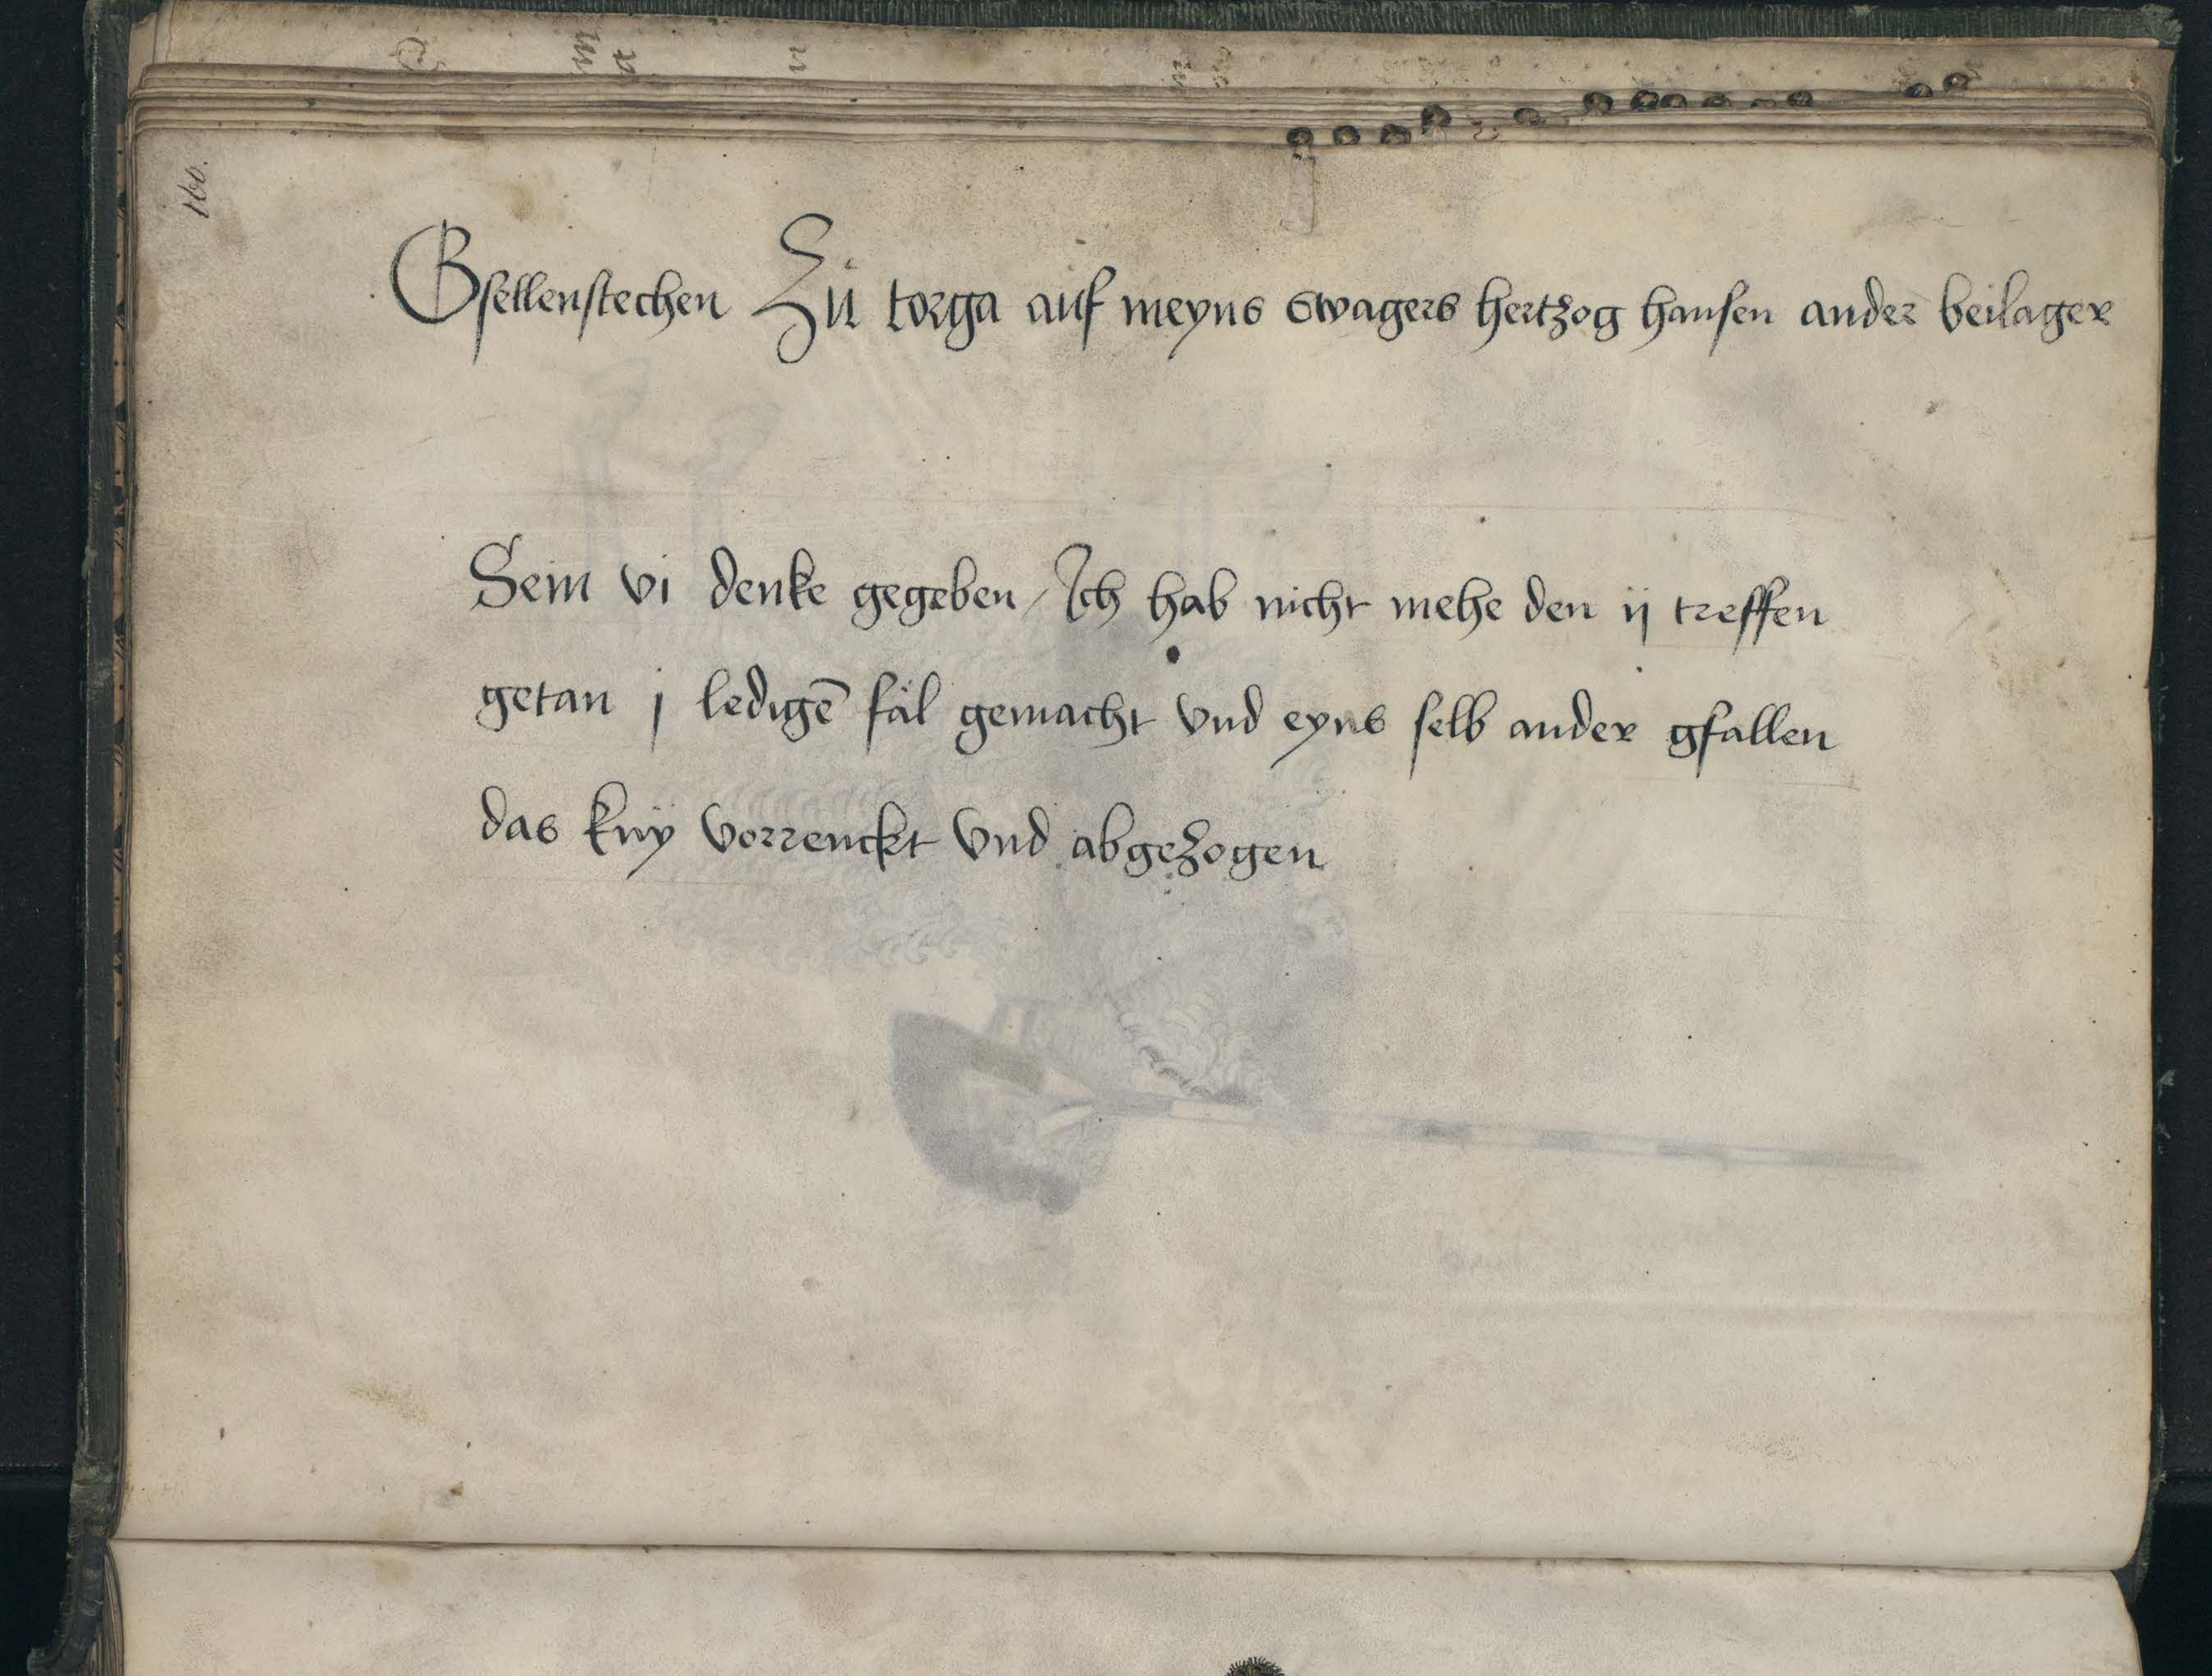 160.
Gsellenstechen Zů torga auf meyns swagers hertzog hansen ander beilager
Sein vi denke gegeben / Ich hab nicht mehe den ij treffen
getan j ledigē fäl gemacht vnd eyns selb ander gfallen
das kny vorrenckt vnd abgezogen